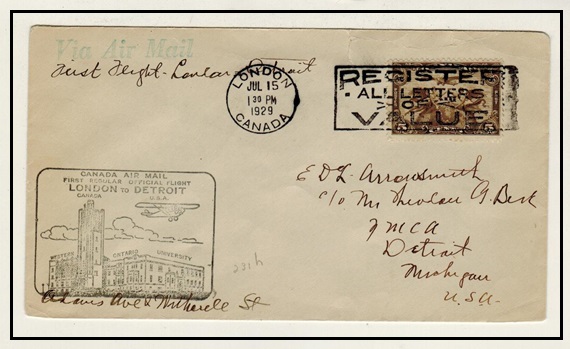 Via Air Mail
First Flight - London Detroit
LONDON
JUL 15
1 30 PM
1929
CANADA
REGISTER
ALL LETTERS
OF
VALUE
CANADA AIR MAIL
FIRST REGULAR OFFICIAL FLIGHT
LONDON TO DETROIT
CANADA U.S.A.
WESTERN ONTARIO UNIVERSITY
E D L Arrowsmith
c/o Mr Theodore G. Beck
YMCA
Detroit
Michigan
U.S.A.
231h
Adams Ave & Witherell St